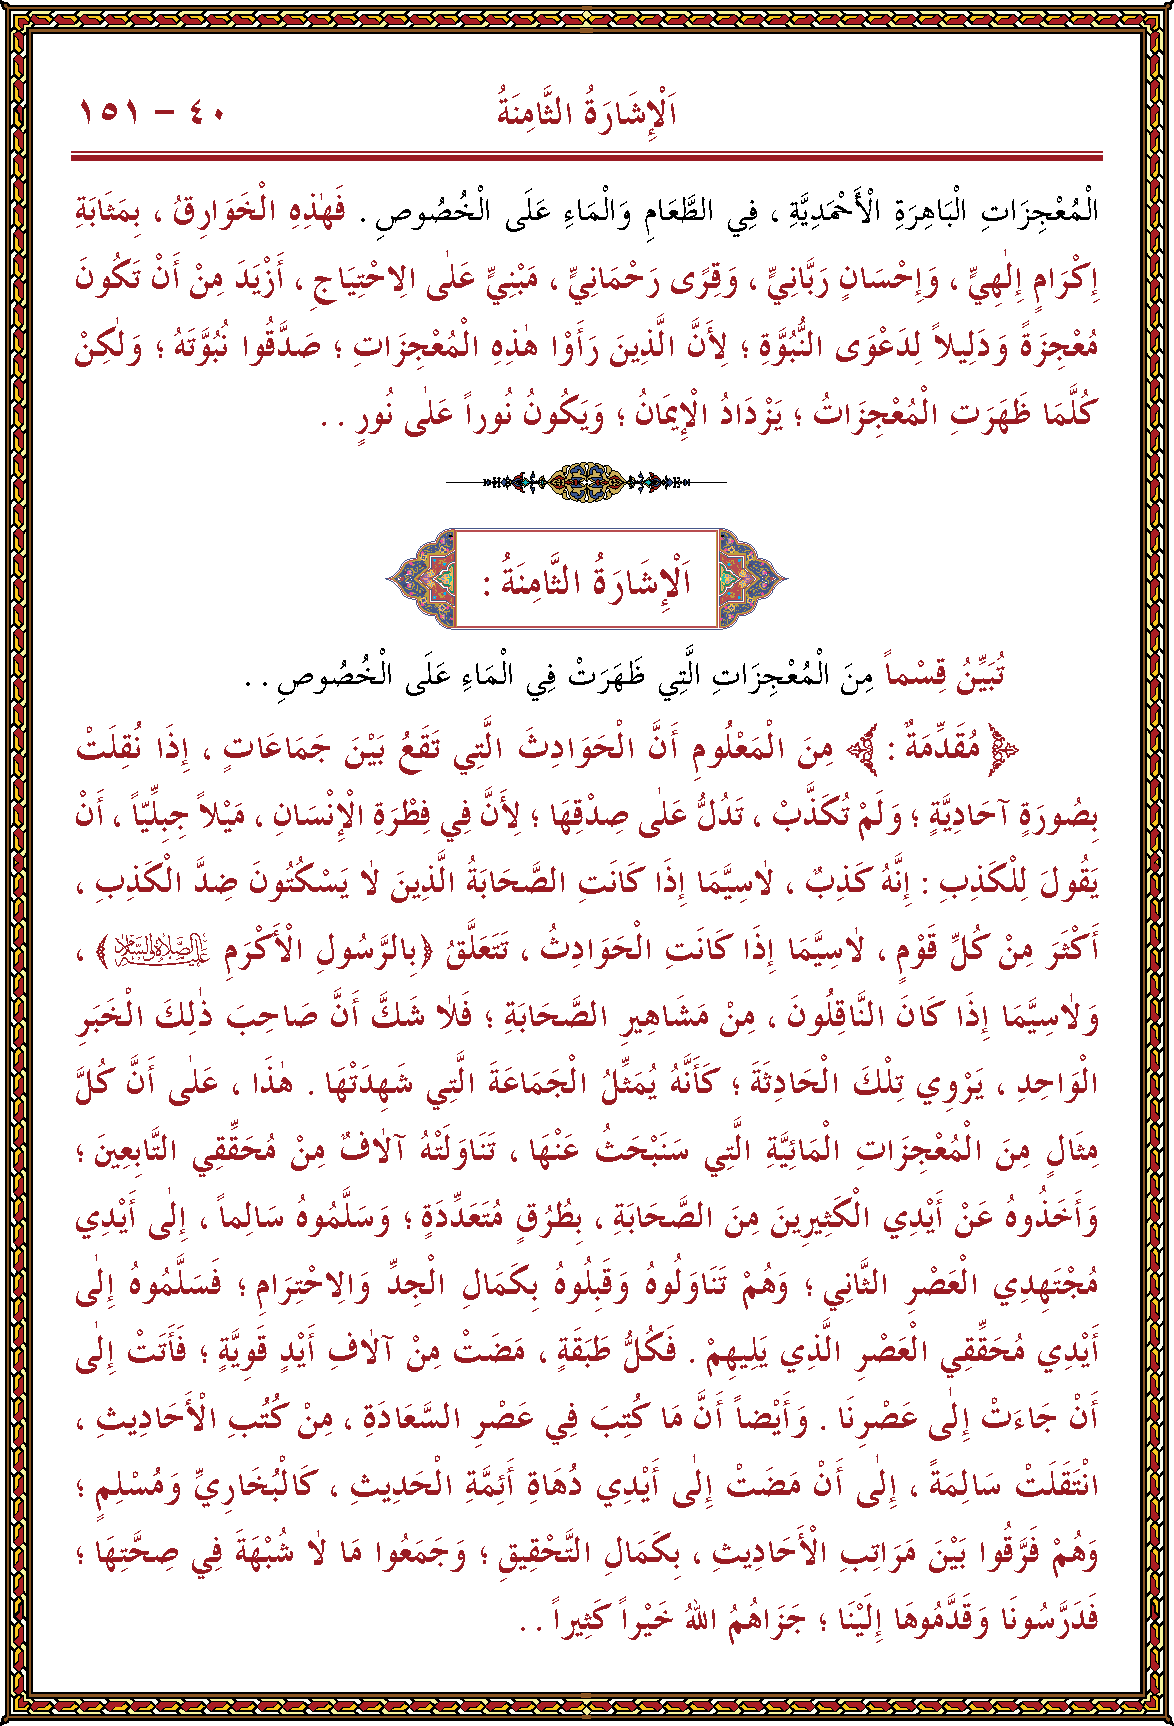 اَلْإِشَارَةُ الثَّامِنَةُ ٤٠ – ١٥١
الْمُعْجِزَاتِ الْبَاهِرَةِ الْأَحْمَدِيَّةِ ، فِي الطَّعَامِ وَالْمَاءِ عَلَى الْخُصُوصِ . فَهٰذِهِ الْخَوَارِقُ ، بِمَثَابَةِ
إِكْرَامٍ إِلٰهِيٍّ ، وَإِحْسَانٍ رَبَّانِيٍّ ، وَقِرًى رَحْمَانِيٍّ ، مَبْنِيٍّ عَلٰى الِاحْتِيَاجِ ، أَزْيَدَ مِنْ أَنْ تَكُونَ
مُعْجِزَةً وَدَلِيلاً لِدَعْوَى النُّبُوَّةِ ؛ لِأَنَّ الَّذِينَ رَأَوْا هٰذِهِ الْمُعْجِزَاتِ ؛ صَدَّقُوا نُبُوَّتَهُ ؛ وَلٰكِنْ
كُلَّمَا ظَهَرَتِ الْمُعْجِزَاتُ ؛ يَزْدَادُ الْإِيمَانُ ؛ وَيَكُونُ نُوراً عَلٰى نُورٍ . .
اَلْإِشَارَةُ الثَّامِنَةُ :
تُبَيِّنُ قِسْماً مِنَ الْمُعْجِزَاتِ الَّتِي ظَهَرَتْ فِي الْمَاءِ عَلَى الْخُصُوصِ . .
﴿ مُقَدِّمَةٌ : ﴾ مِنَ الْمَعْلُومِ أَنَّ الْحَوَادِثَ الَّتِي تَقَعُ بَيْنَ جَمَاعَاتٍ ، إِذَا نُقِلَتْ
بِصُورَةٍ آحَادِيَّةٍ ؛ وَلَمْ تُكَذَّبْ ، تَدُلُّ عَلٰى صِدْقِهَا ؛ لِأَنَّ فِي فِطْرَةِ الْإِنْسَانِ ، مَيْلاً جِبِلِّيّاً ، أَنْ
يَقُولَ لِلْكَذِبِ : إِنَّهُ كَذِبٌ ، لاَسِيَّمَا إِذَا كَانَتِ الصَّحَابَةُ الَّذِينَ لاٰ يَسْكُتُونَ ضِدَّ الْكَذِبِ ،
أَكْثَرَ مِنْ كُلِّ قَوْمٍ ، لاٰسِيَّمَا إِذَا كَانَتِ الْحَوَادِثُ ، تَتَعَلَّقُ ﴿بِالرَّسُولِ الْأَكْرَمِ عَلَيْهِ الصَّلَاةُ وَالسَّلَامُ﴾ ،
وَلاٰسِيَّمَا إِذَا كَانَ النَّاقِلُونَ ، مِنْ مَشَاهِيرِ الصَّحَابَةِ ؛ فَلاٰ شَكَّ أَنَّ صَاحِبَ ذٰلِكَ الْخَبَرِ
الْوَاحِدِ ، يَرْوِي تِلْكَ الْحَادِثَةَ ؛ كَأَنَّهُ يُمَثِّلُ الْجَمَاعَةَ الَّتِي شَهِدَتْهَا . هٰذَا ، عَلٰى أَنَّ كُلَّ
مِثَالٍ مِنَ الْمُعْجِزَاتِ الْمَائِيَّةِ الَّتِي سَنَبْحَثُ عَنْهَا ، تَنَاوَلَتْهُ آلاٰفٌ مِنْ مُحَقِّقِي التَّابِعِينَ ؛
وَأَخَذُوهُ عَنْ أَيْدِي الْكَثِيرِينَ مِنَ الصَّحَابَةِ ، بِطُرُقٍ مُتَعَدِّدَةٍ ؛ وَسَلَّمُوهُ سَالِماً ، إِلٰى أَيْدِي
مُجْتَهِدِي الْعَصْرِ الثَّانِي ؛ وَهُمْ تَنَاوَلُوهُ وَقَبِلُوهُ بِكَمَالِ الْجِدِّ وَالِاحْتِرَامِ ؛ فَسَلَّمُوهُ إِلٰى
أَيْدِي مُحَقِّقِي الْعَصْرِ الَّذِي يَلِيهِمْ . فَكُلُّ طَبَقَةٍ ، مَضَتْ مِنْ آلاٰفِ أَيْدٍ قَوِيَّةٍ ؛ فَأَتَتْ إِلٰى
أَنْ جَاءَتْ إِلٰى عَصْرِنَا . وَأَيْضاً أَنَّ مَا كُتِبَ فِي عَصْرِ السَّعَادَةِ ، مِنْ كُتُبِ الْأَحَادِيثِ ،
انْتَقَلَتْ سَالِمَةً ، إِلٰى أَنْ مَضَتْ إِلٰى أَيْدِي دُهَاةِ أَئِمَّةِ الْحَدِيثِ ، كَالْبُخَارِيِّ وَمُسْلِمٍ ؛
وَهُمْ فَرَّقُوا بَيْنَ مَرَاتِبِ الْأَحَادِيثِ ، بِكَمَالِ التَّحْقِيقِ ؛ وَجَمَعُوا مَا لاٰ شُبْهَةَ فِي صِحَّتِهَا ؛
فَدَرَّسُونَا وَقَدَّمُوهَا إِلَيْنَا ؛ جَزَاهُمُ اللهُ خَيْراً كَثِيراً . .